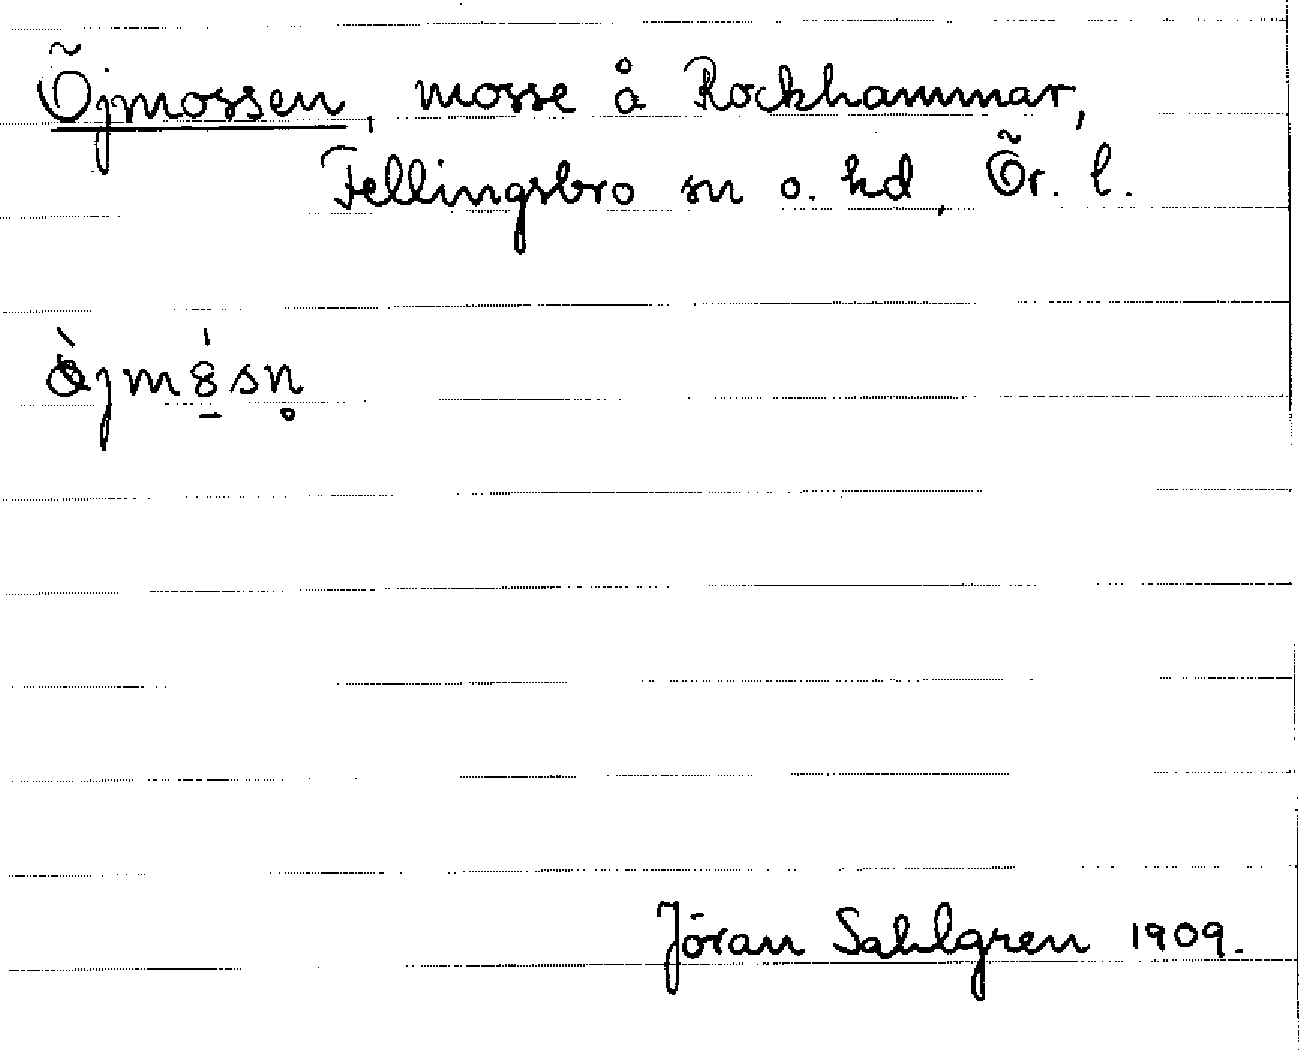 Öjmossen, mosse å Rockhammar,
Fellingsbro sn o. hd, Ör. l.
Jöran Sahlgren 1909.